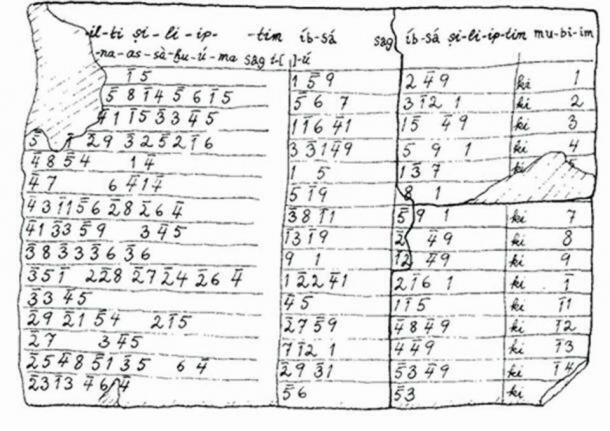 il-ti ṣi-li-ip- -tim íb-sá sag íb-sá ṣi-li-ip-tim mu-bi-im
-na-as-sà-ḫu-ú-ma sag i-[ ]-ú
1̄ 5 1 5̄ 9 2 4̄ 9 ki 1
5̄ 8 1̄ 4 5̄ 6 1̄ 5 5̄ 6 7 3 1̄ 2 1 ki 2
4̄ 1 1̄ 5 3̄ 3 4̄ 5 1 1̄ 6 4̄ 1 1̄ 5 4̄ 9 ki 3
5̄ 2̄ 9 3̄ 2 5̄ 2 1̄ 6 3 3̄ 1 4̄ 9 5 9 1 ki 4
4̄ 8 5̄ 4 1̄ 4̄ 1 5 1 3̄ 7 ki
4̄ 7 6 4̄ 1 4̄ 5 1̄ 9 8 1
4̄ 3 1̄ 1 5̄ 6 2̄ 8 2̄ 6 4̄ 3̄ 8 1̄ 1 5̄ 9 1 ki 7
4̄ 1 3̄ 3 5̄ 9 3 4̄ 5 1̄ 3 1̄ 9 2̄ 4̄ 9 ki 8
3̄ 8 3̄ 3 3̄ 6 3̄ 6 9 1 1̄ 2 4̄ 9 ki 9
3̄ 5 1̄ 2 2̄ 8 2̄ 7 2̄ 4 2̄ 6 4̄ 1 2̄ 2 4̄ 1 2 1̄ 6 1 ki 1̄
3̄ 3 4̄ 5 4̄ 5 1 1̄ 5 ki 1̄ 1
2̄ 9 2̄ 1 5̄ 4 2 1̄ 5 2̄ 7 5̄ 9 4̄ 8 4̄ 9 ki 1̄ 2
2̄ 7 3 4̄ 5 7 1̄ 2 1 4 4̄ 9 ki 1̄ 3
2̄ 5 4̄ 8 5̄ 1 3̄ 5 6 4̄ 2̄ 9 3̄ 1 5̄ 3 4̄ 9 ki 1̄ 4
2̄ 3 1̄ 3 4̄ 6 4̄ 5̄ 6 5̄ 3 ki